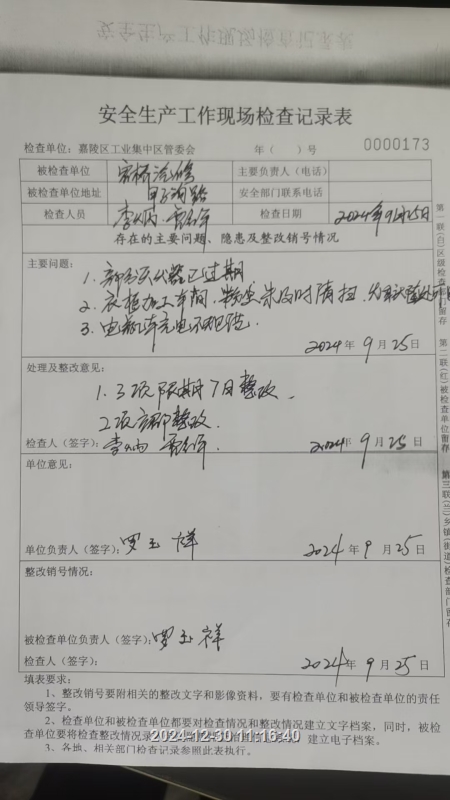 安全生产工作现场检查记录表
检查单位：嘉陵区工业集中区管委会 年（ ）号 0000173
被检查单位 主要负责人（电话）
被检查单位地址 安全部门联系电话
检查人员 检查日期 2024年9月25日
存在的主要问题、隐患及整改销号情况
主要问题：
1.部分灭火器已过期
2.衣柜加工车间 未及时清扫
3.电瓶车充电不规范
2024年9月25日
处理及整改意见：
1.3项限期7日整改、
2项立即整改.
检查人（签字）： 2024年9月25日
单位意见：
单位负责人（签字）：罗玉祥 2024年9月25日
整改销号情况：
被检查单位负责人（签字）：罗玉祥
检查人（签字）： 2024年9月25日
填表要求：
1、整改销号要附相关的整改文字和影像资料，要有检查单位和被检查单位的责任
领导签字。
2、检查单位和被检查单位都要对检查情况和整改情况建立文字档案，同时，被检
查单位要将检查整改情况 建立电子档案。
3、各地、相关部门检查记录参照此表执行。
2024-12-30 11:16:40
第一联(白)区级检查部门留存
第二联(红)被检查单位留存
第三联(兰)乡镇(街道)检查部门留存